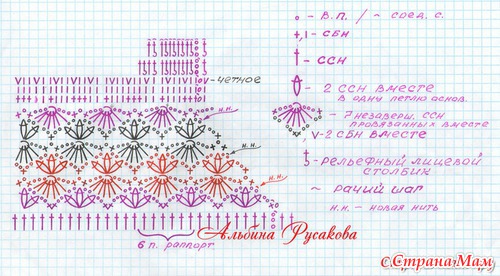 ∘ - В.П. / ⌢ СОЕД. С.
+, ı - СБН
† - ССН
- 2 ССН ВМЕСТЕ
В ОДНУ ПЕТЛЮ ОСНОВ.
- 7 НЕЗАВЕРШ. ССН
ПРОВЯЗАННЫХ ВМЕСТЕ
V - 2 СБН ВМЕСТЕ
- РЕЛЬЕФНЫЙ ЛИЦЕВОЙ
СТОЛБИК
~ РАЧИЙ ШАГ
Н.Н. - НОВАЯ НИТЬ
V - ЧЕТНОЕ
Н.Н.
Н.Н.
Н.Н.
6 П. РАППОРТ
Альбина Русакова
с.Страна Мам